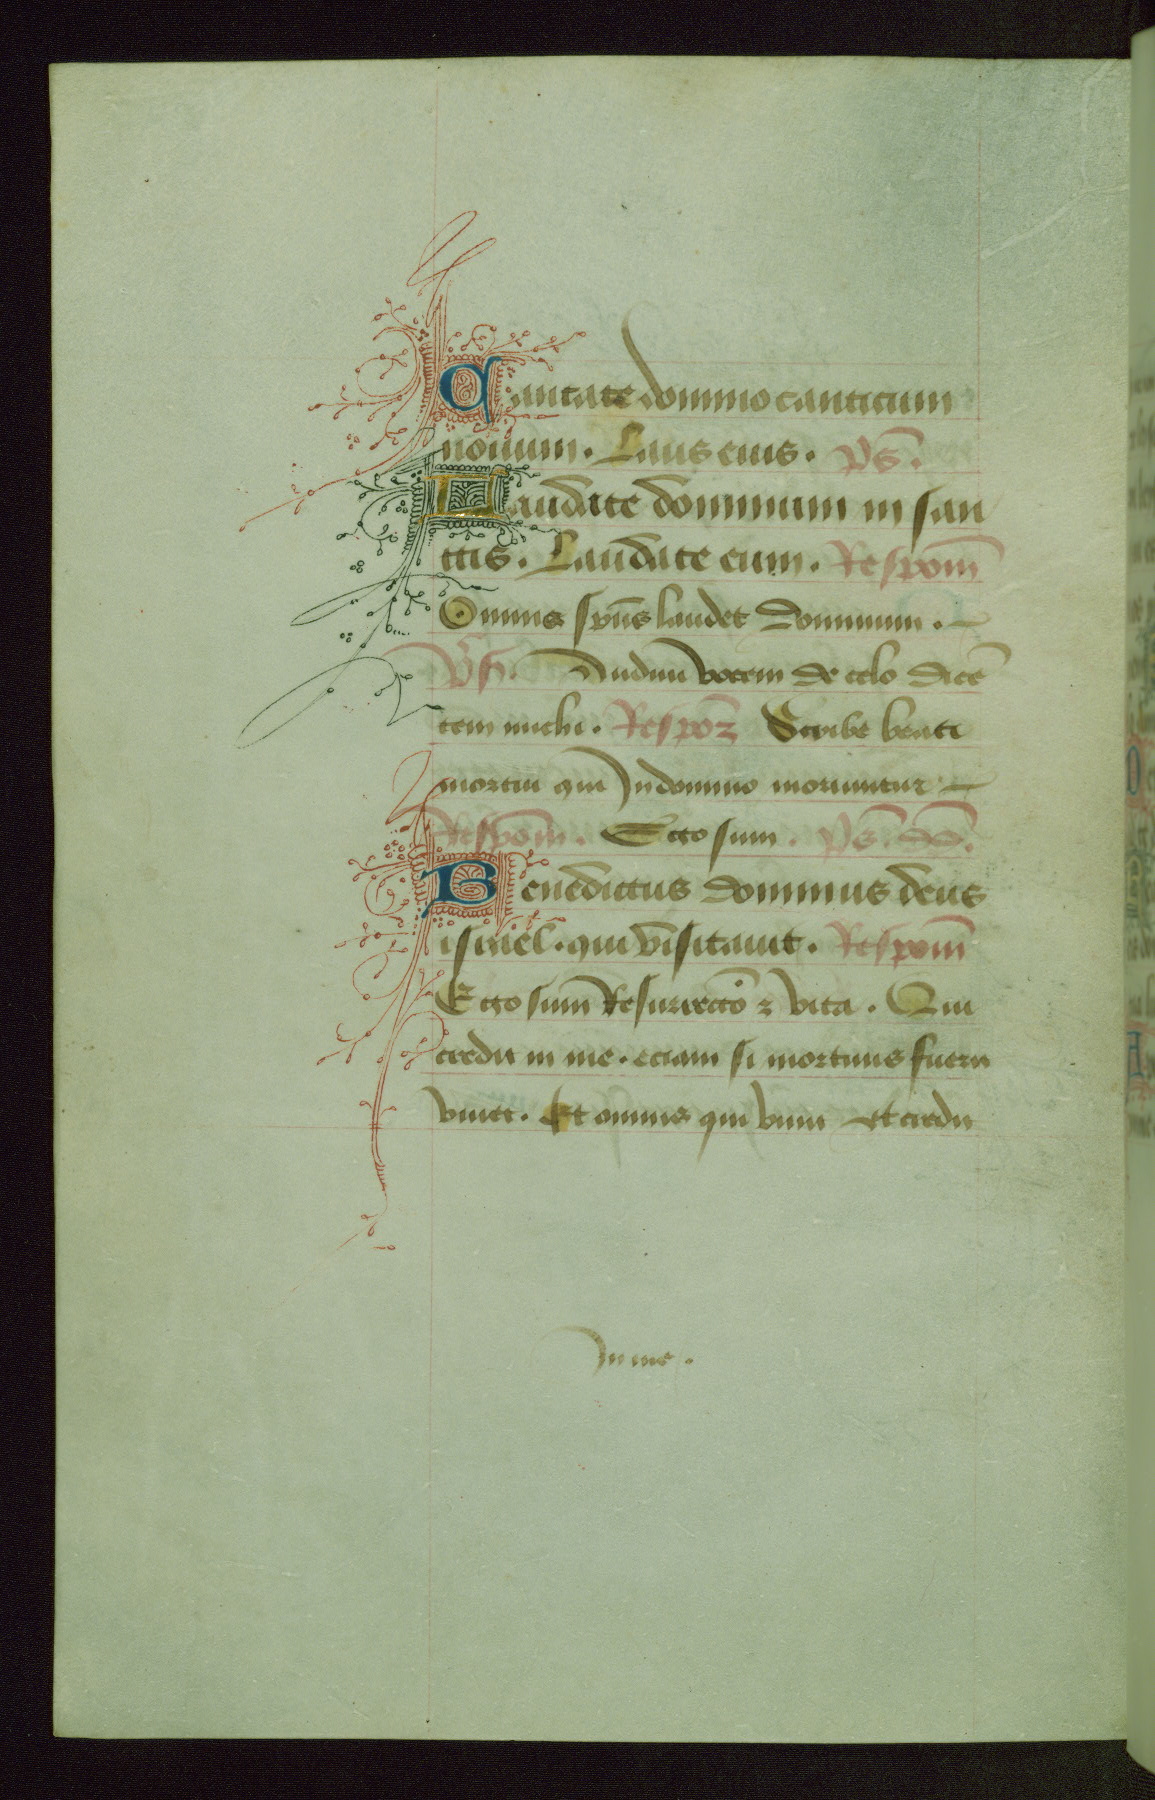 Cantate domino canticum
nouum. Laus eius. ps̄.
Laudate dominum in san
ctis. Laudate eum. Respom̄
Omnis sp̄us laudet dominum.
Vſi. Audiui vocem de celo dicē
tem michi. Respoꝝ Scribe beati
mortui qui In domino moriuntur
Respom̄. Ego sum. ps̄. dd̄.
Benedictus dominus deus
israel. qui visitauit. Respom̄
Ego sum Resurrectō ⁊ vita. Qui
credit in me. eciam si mortuus fuerit
viuet. Et omnis qui viuit et credit
In me.